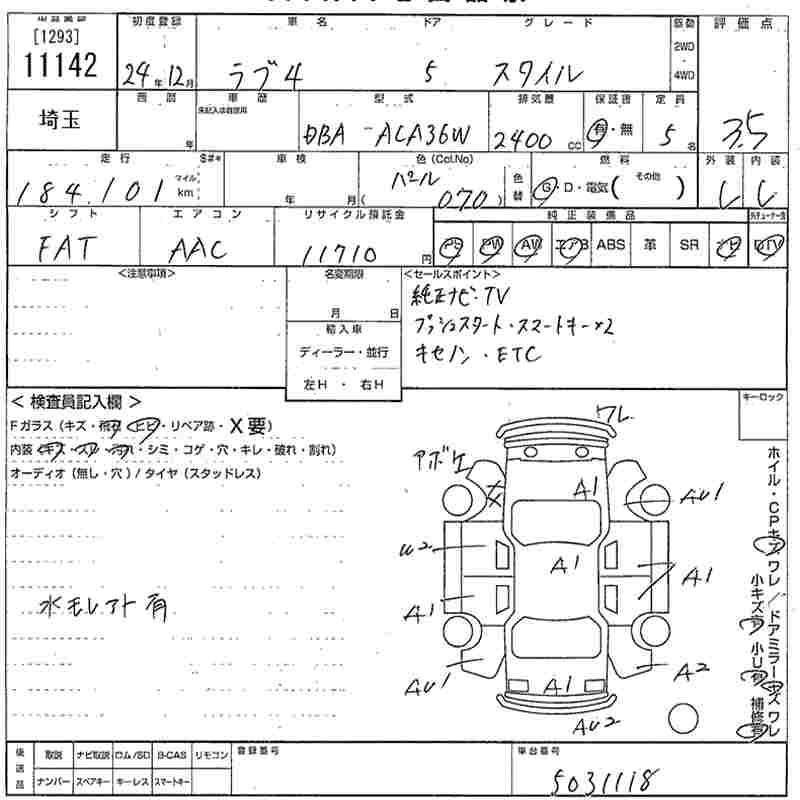 [1293]
11142
初度登録 車名 ドア グレード 駆動 評価点
24年 12月 ラブ4 5 スタイル 2WD・4WD
埼玉
西暦 車歴 型式 排気量 保証書 定員
未記入は自家用
年 DBA -ACA36W 2400 CC 有・無 5名 3.5
走行 $#* 車検 色(Col.No) 燃料 外装 内装
184,101 マイル km 年 月 パール 070 色替 G・D・電気( その他 ) C C
シフト エアコン リサイクル預託金 純正装備品
FAT AAC 11710円 PS PW AW エアB ABS 革 SR ナビ DTV
<注意事項>
名変期限
月 日
輸入車
ディーラー・並行
左H ・ 右H
<セールスポイント>
純正ナビ・TV
プッシュスタート・スマートキー×2
キセノン・ETC
< 検査員記入欄 >
Fガラス(キズ・飛石・ヒビ・リペア跡・X要)
内装(キズ・スレ・汚れ・シミ・コゲ・穴・キレ・破れ・割れ)
オーディオ(無し・穴)/タイヤ(スタッドレス)
水モレアト有
キーロック
ワレ
アボエ
A1
AU1
U2
A1
A1
A1
AU1
A1
A2
AU2
ホイル・CPキズ ワレ/ドアミラーキズ ワレ
小キズ有 小U有 補修有
後送品 取説 ナビ取説 ロム/SD B-CAS リモコン
ナンバー スペアキー キーレス スマートキー
登録番号
車台番号
5031118